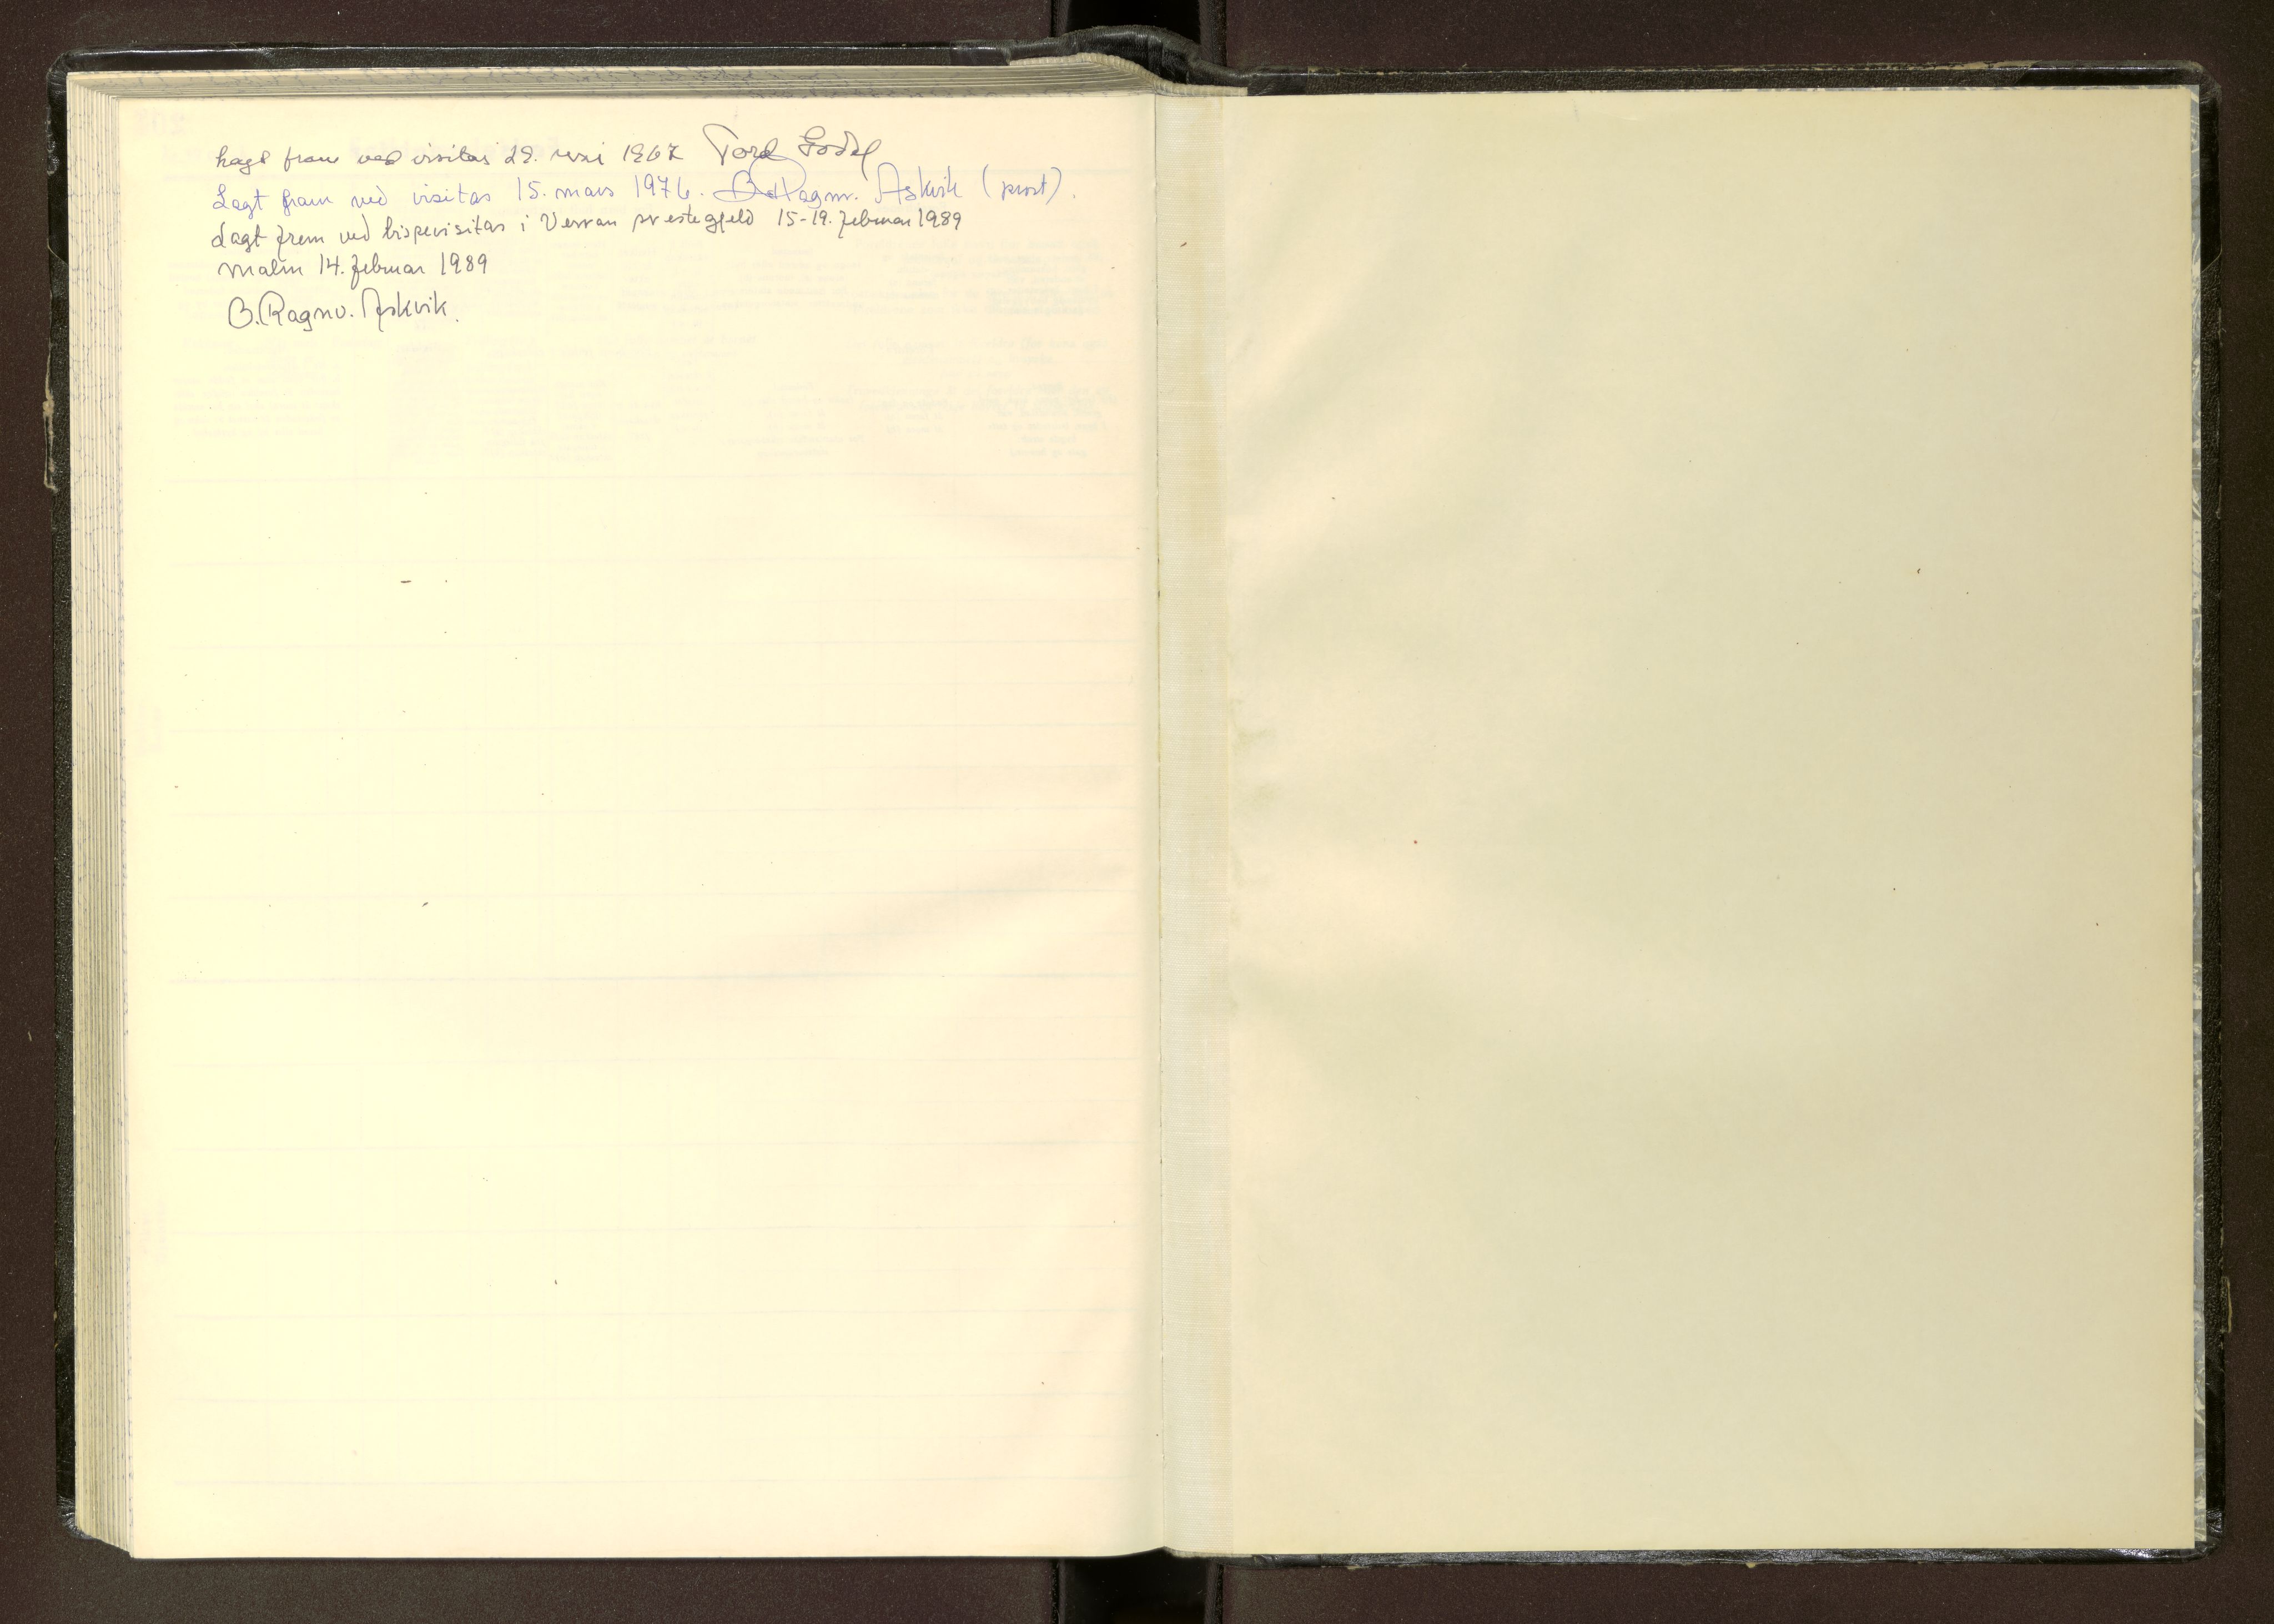 Lagt fram ved visitas 29. mai 1967 Tord Godal
Lagt fram ved visitas 15. mars 1976. B. Ragnv. Askvik (prost).
Lagt frem ved bispevisitas i Verran prestegjeld 15-19. februar 1989
Malm 14. februar 1989
B. Ragnv. Askvik.